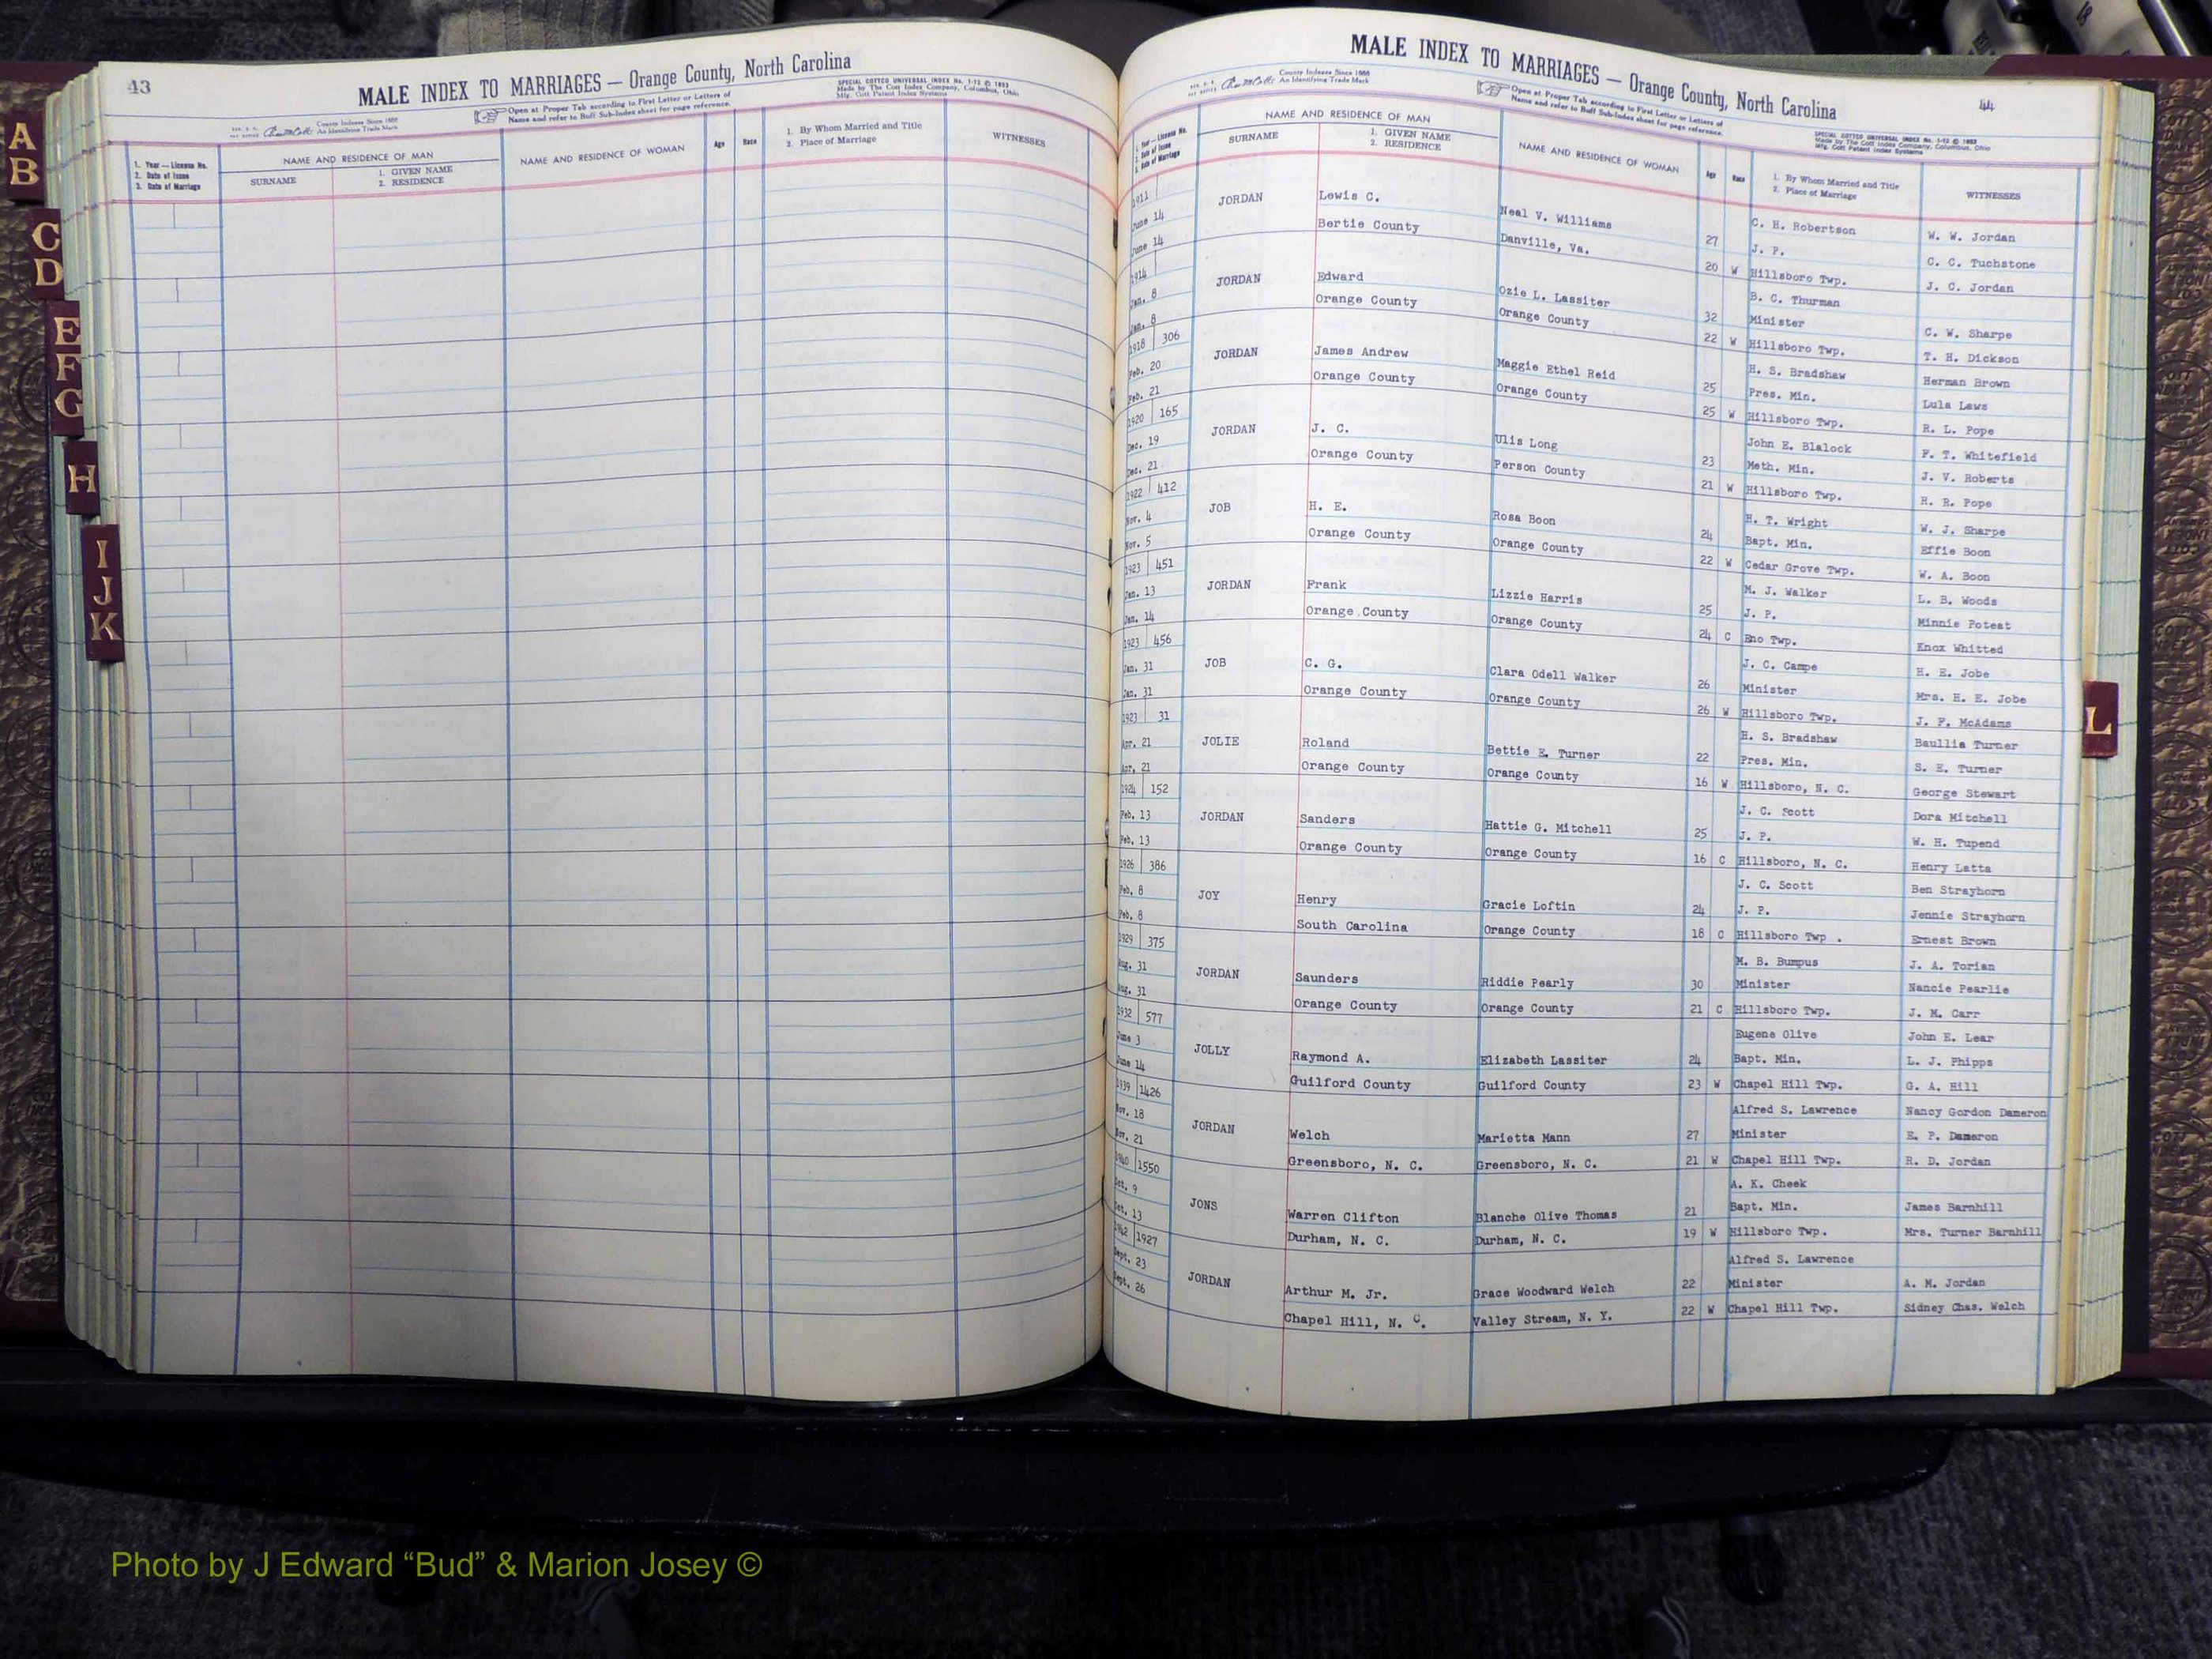 43
MALE INDEX TO MARRIAGES — Orange County, North Carolina
Open at Proper Tab according to First Letter or Letters of
Name and refer to Buff Sub-Index sheet for page reference.
SPECIAL COTTCO UNIVERSAL INDEX No. 1-12 © 1953
Made by The Cott Index Company, Columbus, Ohio
Mfg. Cott Patent Index Systems
County Indexes Since 1888
An Identifying Trade Mark
1. Year — License No.
2. Date of Issue
3. Date of Marriage
NAME AND RESIDENCE OF MAN
SURNAME
1. GIVEN NAME
2. RESIDENCE
NAME AND RESIDENCE OF WOMAN
Age
Race
1. By Whom Married and Title
2. Place of Marriage
WITNESSES
A
B
C
D
E
F
G
H
I
J
K
MALE INDEX TO MARRIAGES — Orange County, North Carolina
44
County Indexes Since 1888
An Identifying Trade Mark
Open at Proper Tab according to First Letter or Letters of
Name and refer to Buff Sub-Index sheet for page reference.
SPECIAL COTTCO UNIVERSAL INDEX No. 1-12 © 1953
Made by The Cott Index Company, Columbus, Ohio
Mfg. Cott Patent Index Systems
1. Year — License No.
2. Date of Issue
3. Date of Marriage
NAME AND RESIDENCE OF MAN
SURNAME
1. GIVEN NAME
2. RESIDENCE
NAME AND RESIDENCE OF WOMAN
Age
Race
1. By Whom Married and Title
2. Place of Marriage
WITNESSES
1911 C. H. Robertson W. W. Jordan
June 14 JORDAN Lewis C. Neal V. Williams 27 J. P. C. C. Tuchstone
June 14 Bertie County Danville, Va. 20 W Hillsboro Twp. J. C. Jordan
1914 B. C. Thurman C. W. Sharpe
Jan. 8 JORDAN Edward Ozie L. Lassiter 32 Minister T. H. Dickson
Jan. 8 Orange County Orange County 22 W Hillsboro Twp. Herman Brown
1918 306 H. S. Bradshaw Lula Laws
Feb. 20 JORDAN James Andrew Maggie Ethel Reid 25 Pres. Min. R. L. Pope
Feb. 21 Orange County Orange County 25 W Hillsboro Twp. F. T. Whitefield
1920 165 John E. Blalock J. V. Roberts
Dec. 19 JORDAN J. C. Ulis Long 23 Meth. Min. R. R. Pope
Dec. 21 Orange County Person County 21 W Hillsboro Twp. W. J. Sharpe
1922 412 H. T. Wright Effie Boon
Nov. 4 JOB H. E. Rosa Boon 24 Bapt. Min. W. A. Boon
Nov. 5 Orange County Orange County 22 W Cedar Grove Twp. L. B. Woods
1923 451 M. J. Walker Minnie Poteat
Jan. 13 JORDAN Frank Lizzie Harris 25 J. P. Knox Whitted
Jan. 14 Orange County Orange County 24 C Eno Twp.
1923 456 J. C. Campe H. E. Jobe
Jan. 31 JOB C. G. Clara Odell Walker 26 Minister Mrs. H. E. Jobe
Jan. 31 Orange County Orange County 26 W Hillsboro Twp. J. F. McAdams
1923 31 H. S. Bradshaw Baullia Turner
Apr. 21 JOLIE Roland Bettie E. Turner 22 Pres. Min. S. E. Turner
Apr. 21 Orange County Orange County 16 W Hillsboro, N. C. George Stewart
1924 152 J. C. Scott Dora Mitchell
Feb. 13 JORDAN Sanders Hattie G. Mitchell 25 J. P. W. H. Tupend
Feb. 13 Orange County Orange County 16 C Hillsboro, N. C. Henry Latta
1926 386 J. C. Scott Ben Strayhorn
Feb. 8 JOY Henry Gracie Loftin 24 J. P. Jennie Strayhorn
Feb. 8 South Carolina Orange County 18 C Hillsboro Twp . Ernest Brown
1929 375 M. B. Bumpus J. A. Torian
Aug. 31 JORDAN Saunders Riddie Pearly 30 Minister Nancie Pearlie
Aug. 31 Orange County Orange County 21 C Hillsboro Twp. J. M. Carr
1932 577 Eugene Olive John E. Lear
June 3 JOLLY Raymond A. Elizabeth Lassiter 24 Bapt. Min. L. J. Phipps
June 14 Guilford County Guilford County 23 W Chapel Hill Twp. G. A. Hill
1939 1426 Alfred S. Lawrence Nancy Gordon Dameron
Nov. 18 JORDAN Welch Marietta Mann 27 Minister E. P. Dameron
Nov. 21 Greensboro, N. C. Greensboro, N. C. 21 W Chapel Hill Twp. R. D. Jordan
1940 1550 A. K. Cheek
Oct. 9 JONS Warren Clifton Blanche Olive Thomas 21 Bapt. Min. James Barnhill
Oct. 13 Durham, N. C. Durham, N. C. 19 W Hillsboro Twp. Mrs. Turner Barnhill
1942 1927 Alfred S. Lawrence
Sept. 23 JORDAN Arthur M. Jr. Grace Woodward Welch 22 Minister A. M. Jordan
Sept. 26 Chapel Hill, N. C. Valley Stream, N. Y. 22 W Chapel Hill Twp. Sidney Chas. Welch
L
Photo by J Edward “Bud” & Marion Josey ©